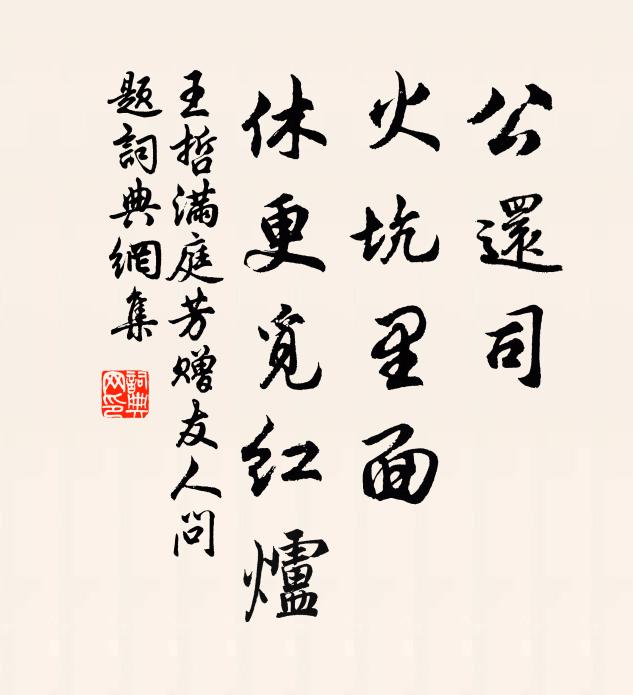 公還司
火坑里面
休更覓红爐
王哲滿庭芳赠友人問
题詞典網集
詞典
网印